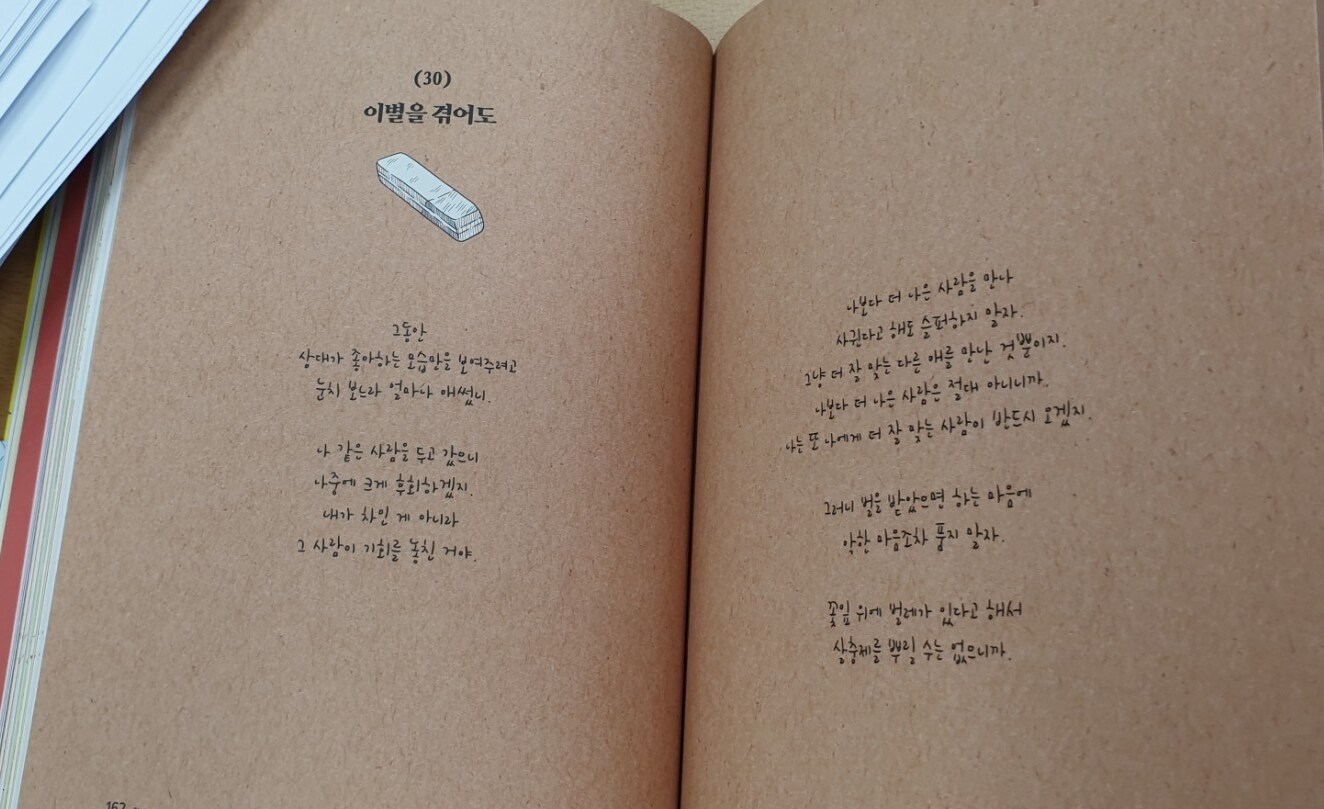 (30)
이별을 겪어도
그동안
상대가 좋아하는 모습만을 보여주려고
눈치 보느라 얼마나 애썼니.
나 같은 사람을 두고 갔으니
나중에 크게 후회하겠지.
내가 차인 게 아니라
그 사람이 기회를 놓친 거야.
162
나보다 더 나은 사람을 만나
사귄다고 해도 슬퍼하지 말자.
그냥 더 잘 맞는 다른 애를 만난 것뿐이지.
나보다 더 나은 사람은 절대 아니니까.
나는 또 나에게 더 잘 맞는 사람이 반드시 오겠지.
그러니 벌을 받았으면 하는 마음에
악한 마음조차 품지 말자.
꽃잎 위에 벌레가 있다고 해서
살충제를 뿌릴 수는 없으니까.